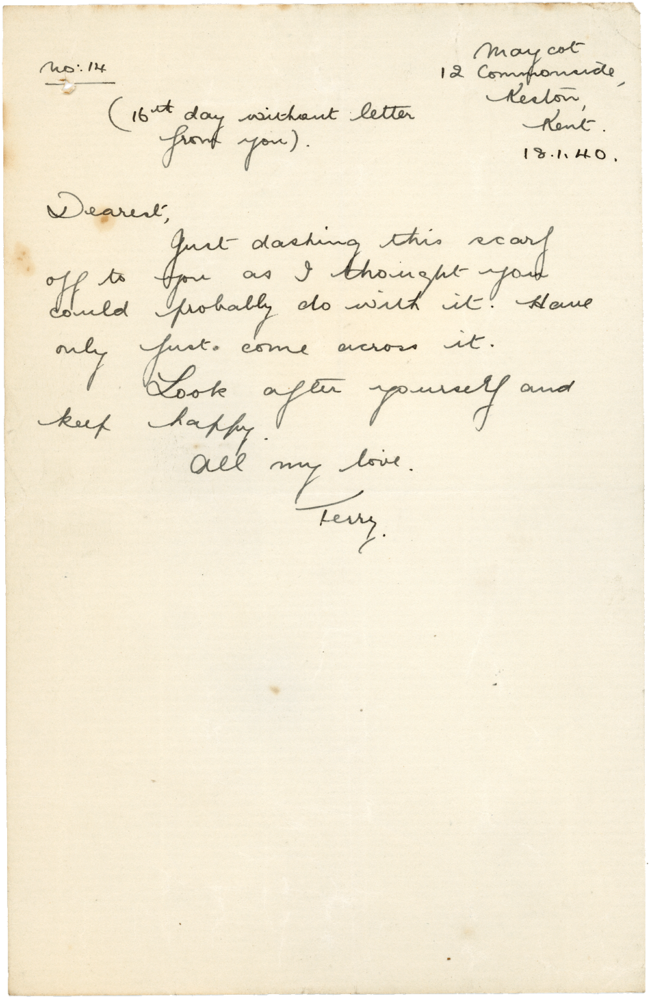 No: 14
Maycot
12 Commonside,
Keston,
Kent.
18.1.40.
(16th day without letter
from you).
Dearest,
Just dashing this scarf
off to you as I thought you
could probably do with it. Have
only just come across it.
Look after yourself and
keep happy.
All my love.
Terry.